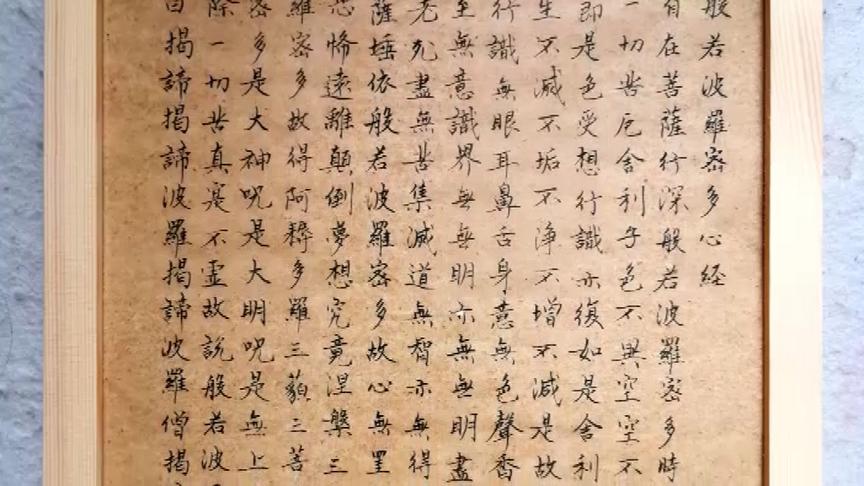 般若波羅密多心経
自在菩薩行深般若波羅密多時
一切苦厄舍利子色不異空空不
即是色受想行識亦復如是舍利
生不滅不垢不浄不増不減是故
行識無眼耳鼻舌身意無色聲香
至無意識界無無明亦無無明盡
老死盡無苦集滅道無智亦無得
薩埵依般若波羅密多故心無罣
恐怖遠離顛倒夢想究竟涅槃三
羅密多故得阿耨多羅三藐三菩
密多是大神呪是大明呪是無上
除一切苦真寔不虚故説般若波
曰揭諦揭諦波羅揭諦波羅僧揭